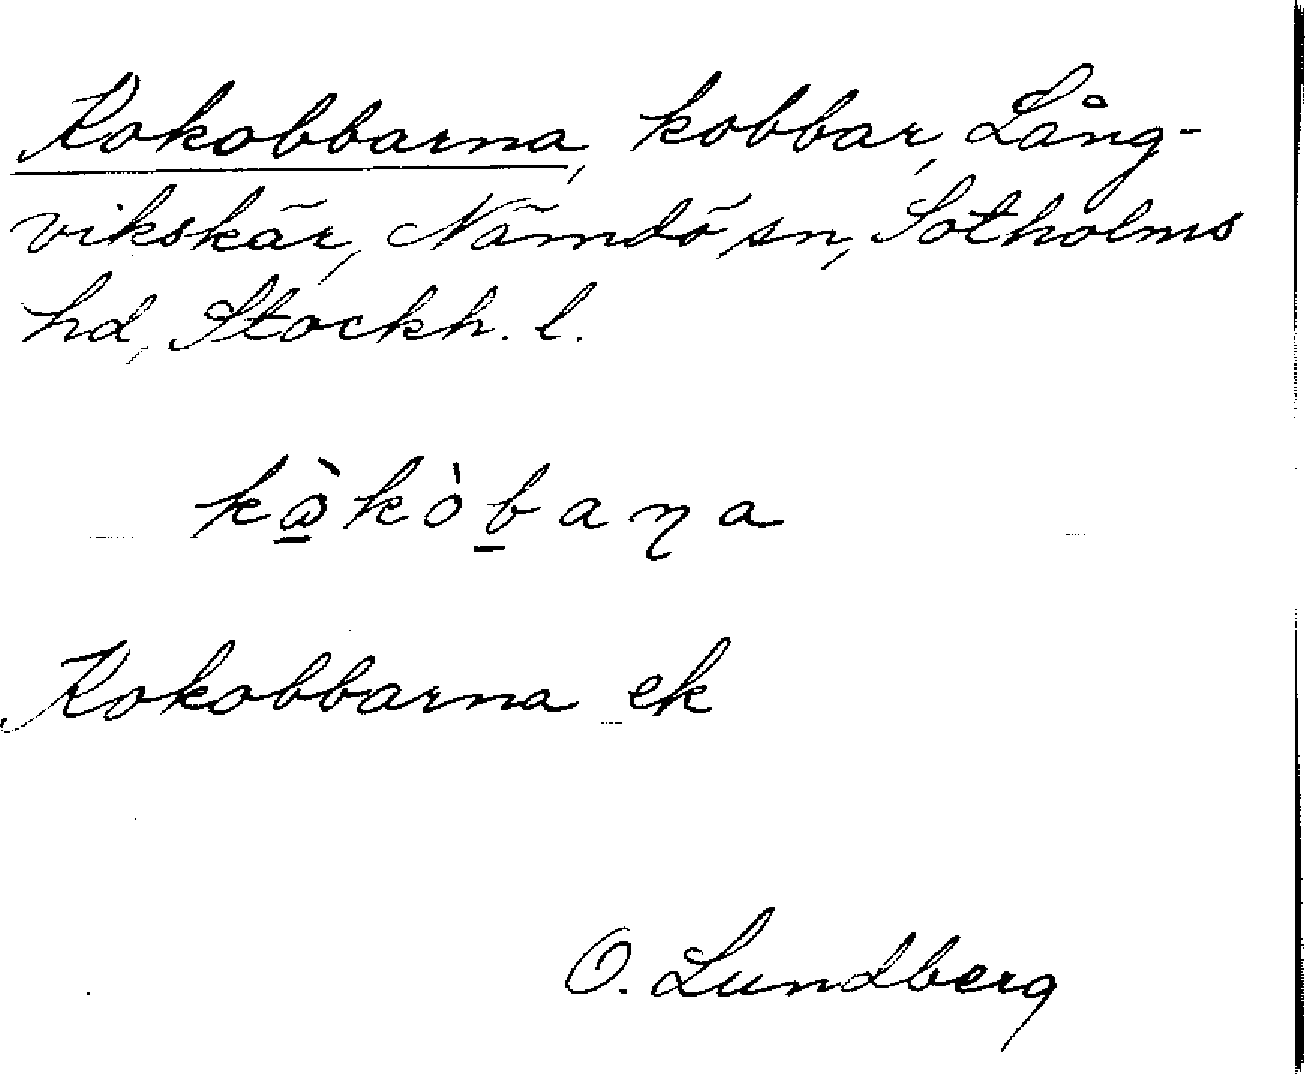 Kokobbarna, kobbar, Lång-
vikskär, Nämdö sn, Sotholms
hd, Stockh. l.
Kokobbarna ek
O. Lundberg